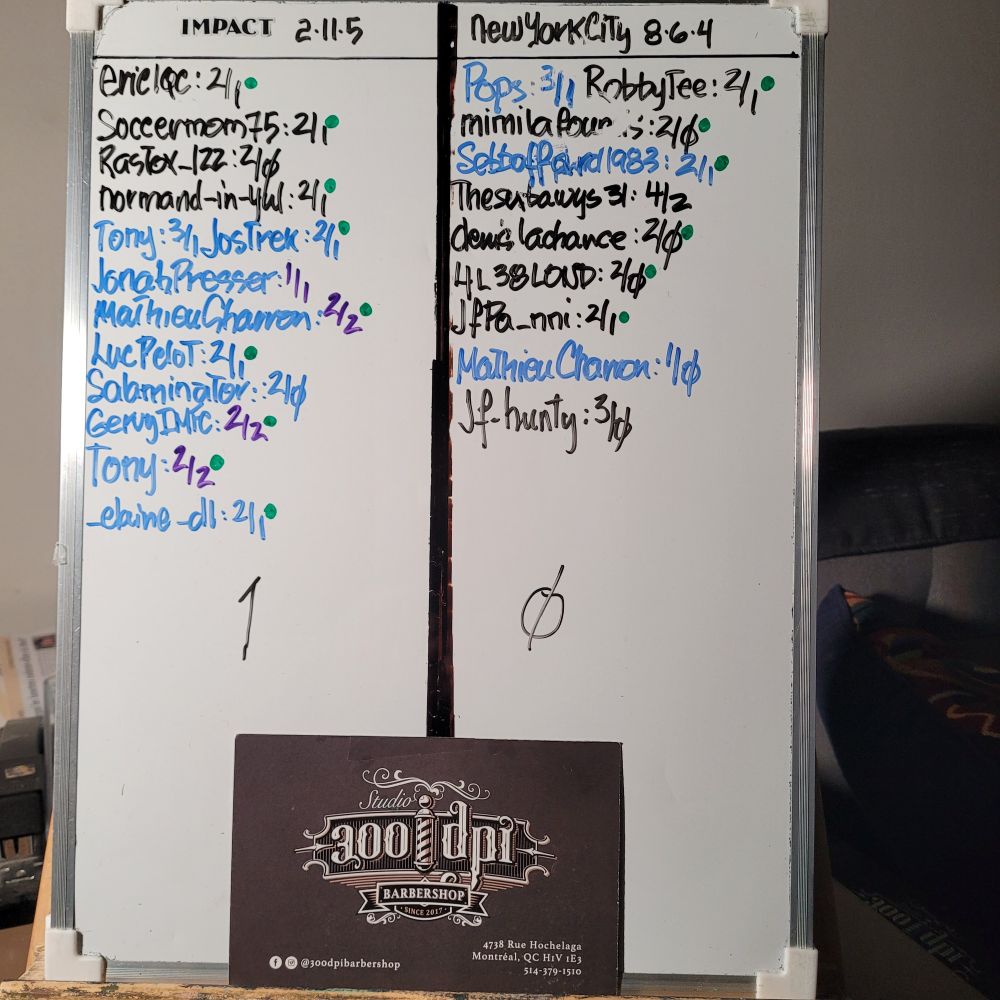 IMPACT 2-11-5
ericlQC: 2/1
Soccermom75: 2/1
RasTox_122: 2/0
normand-in-yul: 2/1
Tony: 3/1 JosTrek: 2/1
JonahPresser: 1/1
MathieuCharron: 2/2
LucPeloT: 2/1
SabaminaTor: 2/0
GervyIMTC: 2/2
Tony: 2/2
_elaine_dll: 2/1
1
newYorkCity 8-6-4
Pops: 3/1 RobbyTee: 2/1
: 2/0
1983: 2/1
Thesubawys31: 4/2
denislachance: 2/0
4L38LOND: 2/0
JfPa_nni: 2/1
MathieuCharron: 1/0
Jf-hunty: 3/0
0
Studio
300 dpi
BARBERSHOP
SINCE 2017
@300dpibarbershop
4738 Rue Hochelaga
Montréal, QC H1V 1E3
514-379-1510
300 dpi